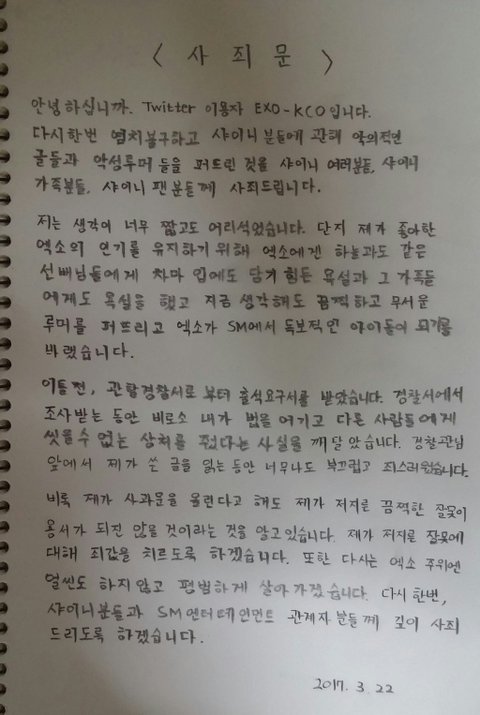 < 사 죄 문 >
안녕하십니까. Twitter 이용자 EXO-KCO입니다.
다시한번 염치불구하고 샤이니분들에 관해 악의적인
글들과 악성루머 들을 퍼트린 것을 샤이니 여러분들, 샤이니
가족분들, 샤이니 팬분들께 사죄드립니다.
저는 생각이 너무 짧고도 어리석었습니다. 단지 제가 좋아한
엑소의 인기를 유지하기 위해 엑소에겐 하늘과도 같은
선배님들에게 차마 입에도 담기 힘든 욕설과 그 가족들
에게도 욕설을 했고 지금 생각해도 끔찍하고 무서운
루머를 퍼뜨리고 엑소가 SM에서 독보적인 아이돌이 되기를
바랬습니다.
이틀전, 관할경찰서로 부터 출석요구서를 받았습니다. 경찰서에서
조사받는 동안 비로소 내가 법을 어기고 다른 사람들에게
씻을수 없는 상처를 줬다는 사실을 깨달았습니다. 경찰관님
앞에서 제가 쓴 글을 읽는동안 너무나도 부끄럽고 죄스러웠습니다.
비록 제가 사과문을 올린다고 해도 제가 저지른 끔찍한 잘못이
용서가 되진 않을 것이라는 것을 알고있습니다. 제가 저지른 잘못에
대해 죄값을 치르도록 하겠습니다. 또한 다시는 엑소 주위엔
얼씬도 하지않고 평범하게 살아가겠습니다. 다시 한번,
샤이니분들과 SM엔터테인먼트 관계자분들께 깊이 사죄
드리도록 하겠습니다.
2017. 3. 22